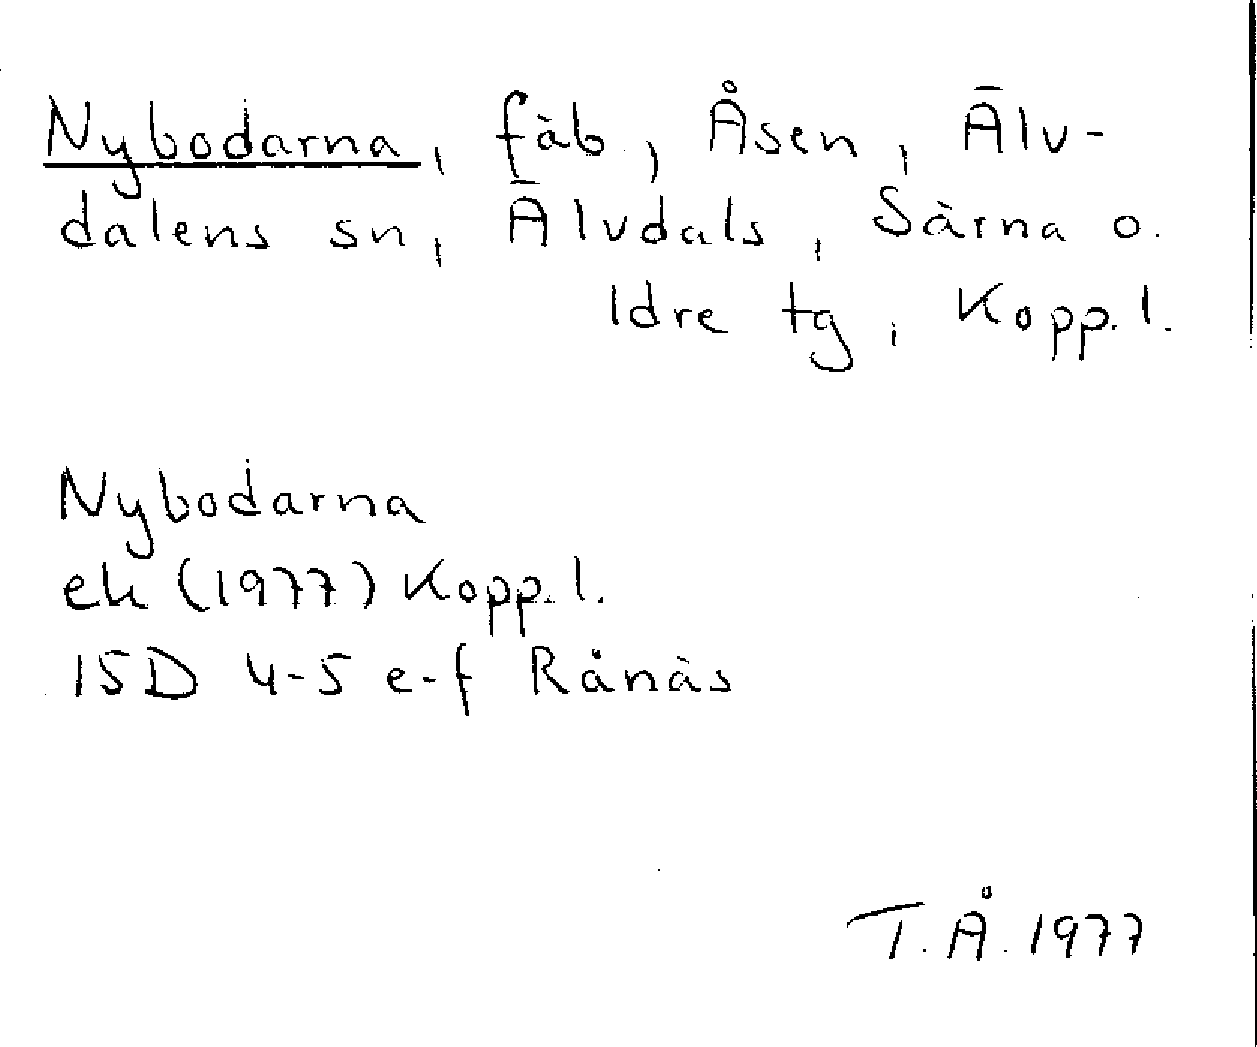 Nybodarna, fäb, Åsen, Älv-
dalens sn, Älvdals, Särna o.
Idre tg, Kopp. l.
Nybodarna
ek (1977) Kopp. l.
15D 4-5 e-f Rånäs
T. Å. 1977